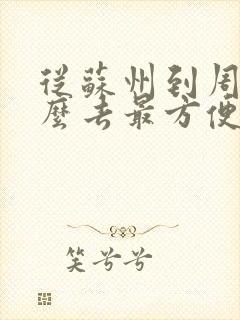 從蘇州到周
麼去最方便
笑兮兮